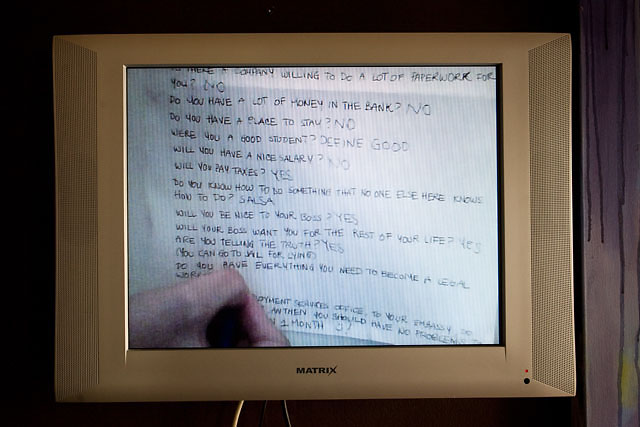 THERE A COMPANY WILLING TO DO A LOT OF PAPERWORK FOR
YOU? NO
DO YOU HAVE A LOT OF MONEY IN THE BANK? NO
DO YOU HAVE A PLACE TO STAY? NO
WERE YOU A GOOD STUDENT? DEFINE GOOD
WILL YOU HAVE A NICE SALARY? NO
WILL YOU PAY TAXES? YES
DO YOU KNOW HOW TO DO SOMETHING THAT NO ONE ELSE HERE KNOWS
HOW TO DO? SALSA
WILL YOU BE NICE TO YOUR BOSS? YES
WILL YOUR BOSS WANT YOU FOR THE REST OF YOUR LIFE? YES
ARE YOU TELLING THE TRUTH? YES
(YOU CAN GO TO JAIL FOR LYING)
DO YOU HAVE EVERYTHING YOU NEED TO BECOME A LEGAL
OYMENT SERVICES OFFICE, TO YOUR EMBASSY, DO
ANTHEN YOU SHOULD HAVE NO PROBLEMS
1 MONTH
MATRIX